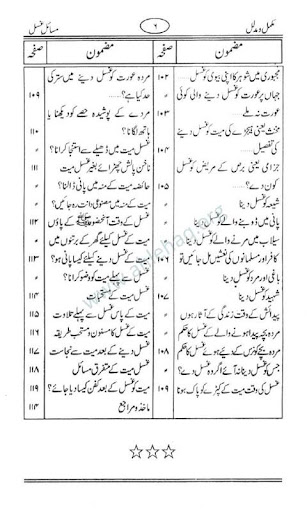 مسائل غسل
۶
مکمل و مدلل
مضمون
صفحہ
مجبوری میں شوہر کا اپنی بیوی کو غسل دینا
۱۰۲
جہاں پر عورت کو غسل دینے والی کوئی
عورت نہ ملے
۱۰۳
مخنث یعنی کی میت کو غسل دینے
کی تفصیل
۱۰۴
جزامی یعنی برص کے مریض کو غسل
کون دے؟
۱۰۵
شیعہ کو غسل دینا
پانی میں ڈوبنے والے کو غسل دینا
سیلاب میں مرنے والے کو غسل دینا
کافر اور مسلمانوں کی نعشیں مل جائیں تو
۱۰۶
باغی اور مرتد کو غسل دینا
شہید کو غسل دینا
۱۰۷
پیدائش کے وقت زندگی کے آثار ہوں
مردہ بچہ پیدا ہونے والے کو غسل کا حکم
مردہ بچے کو نرس کے دیئے ہوئے غسل کا حکم
۱۰۸
جس کو غسل دینا نہ آئے اگر وہ غسل دے؟
غسل کی وقت میت کے کپڑے کو پاک ہونا
۱۰۹
مضمون
صفحہ
مرد و عورت کو غسل دینے میں ستر کی
حد کیا ہے؟
۱۰۹
مردے کے پوشیدہ حصے کو دیکھنا یا
ہاتھ لگانا؟
۱۱۰
غسل میت میں ڈھیلے سے استنجا کرانا؟
ناخن پالش چھڑائے بغیر غسل میت
۱۱۱
حائضہ میت کے منہ میں پانی ڈالنا؟
میت کے منہ میں مصنوعی دانت رہ جائیں؟
غسل کے وقت آنحضور ﷺ کے پاؤں
۱۱۲
میت کے غسل کیلئے گھر کے برتنوں میں
غسل دینے کیلئے کیسا پانی ہو؟
۱۱۳
غسل سے پہلے میت کو وضو کرانا؟
غسل میت
۱۱۴
غسل سے پہلے میت کے پاس تلاوت
۱۱۵
میت کے غسل کا مسنون و مستحب طریقہ
۱۱۶
غسل دینے کے بعد میت سے نجاست
۱۱۷
غسل میت کے متفرق مسائل
۱۱۸
میت کو غسل کے بعد کفن کیسا دیا جائے؟
۱۱۹
ماخذ و مراجع
۱۱۴